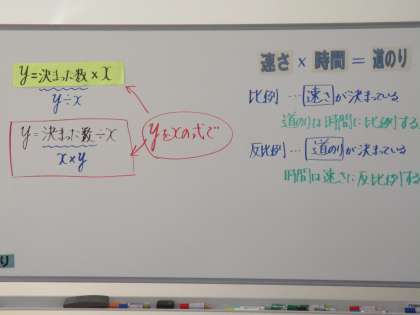 y=決まった数×x
y÷x
y=決まった数÷x
x×y
yをxの式で
速さ × 時間 = 道のり
比例 … 速さが決まっている
道のりは時間に比例する
反比例 … 道のりが決まっている
時間は速さに反比例する
り